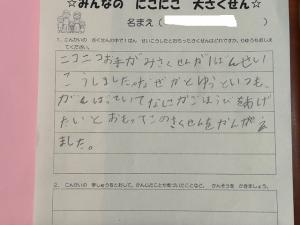 ☆みんなの にこにこ 大さくせん☆
名まえ( )
1. こんかいの さくせんの中で1ばん せいこうしたとおもったさくせんはどれですか。りゆうもおしえ
てください。
ニコニコお手がみさくせんが1ばんせい
こうしました。なぜかとゆうといつも、
がんばっていてなにかごほうびをあげ
たいとおもってこのさくせんをかんがえ
ました。
2. こんかいの 学しゅうをとおして、かんじたことや気づいたことなど、 かんそうを かきましょう。